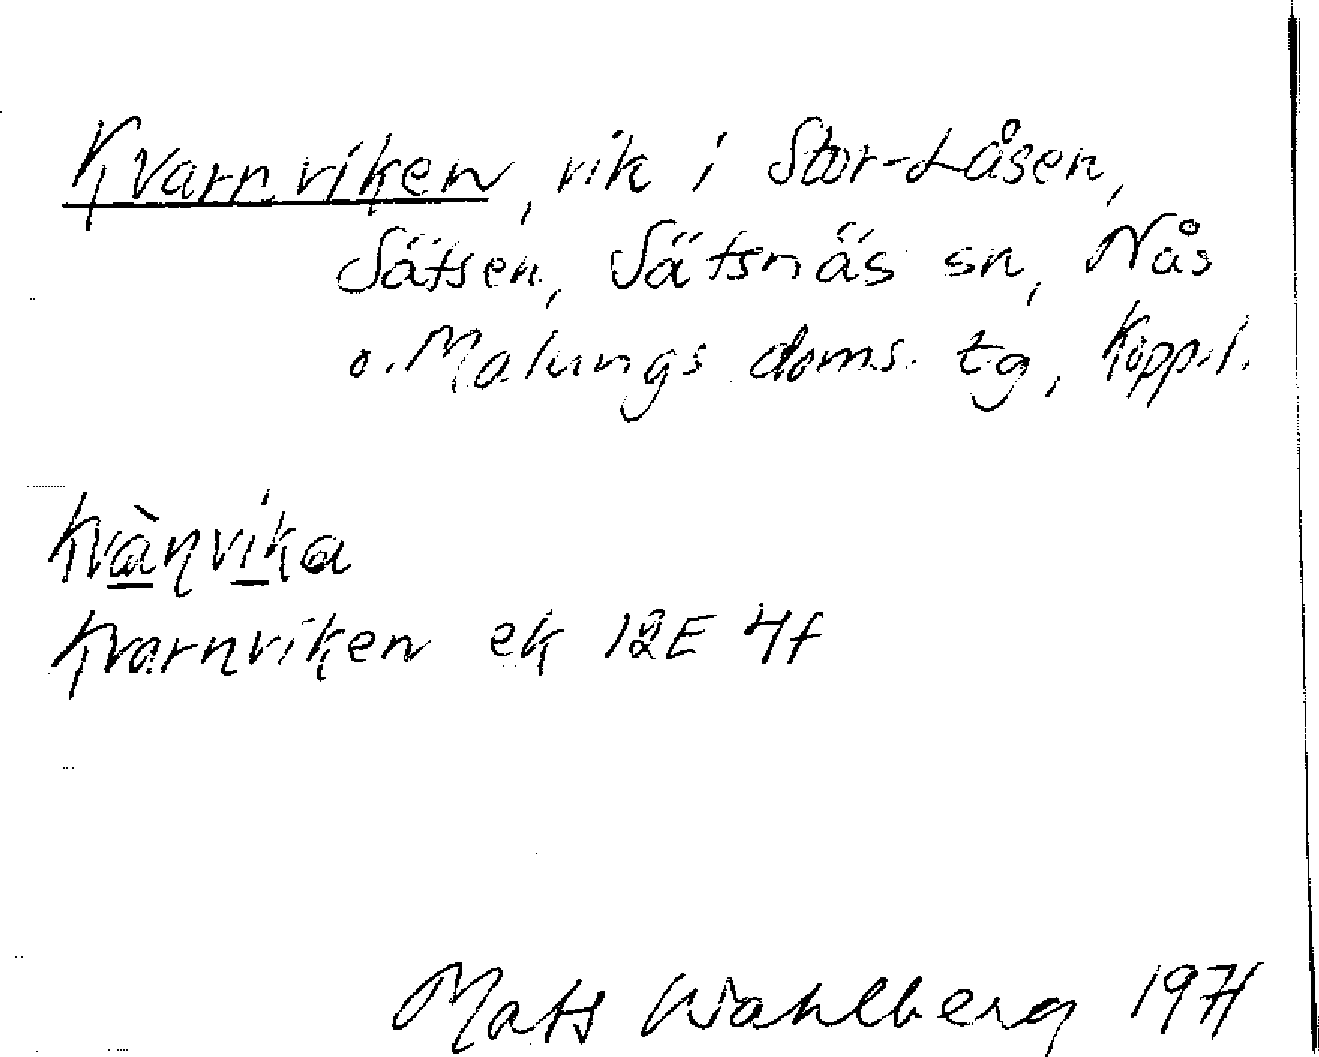 Kvarnviken, vik i Stor-Låsen,
Sätsen, Sätsnäs sn, Nås
o. Malungs doms. tg, Kopp.l.
Kvàṇvika
Kvarnviken ek 12E 4f
Mats Wahlberg 1971